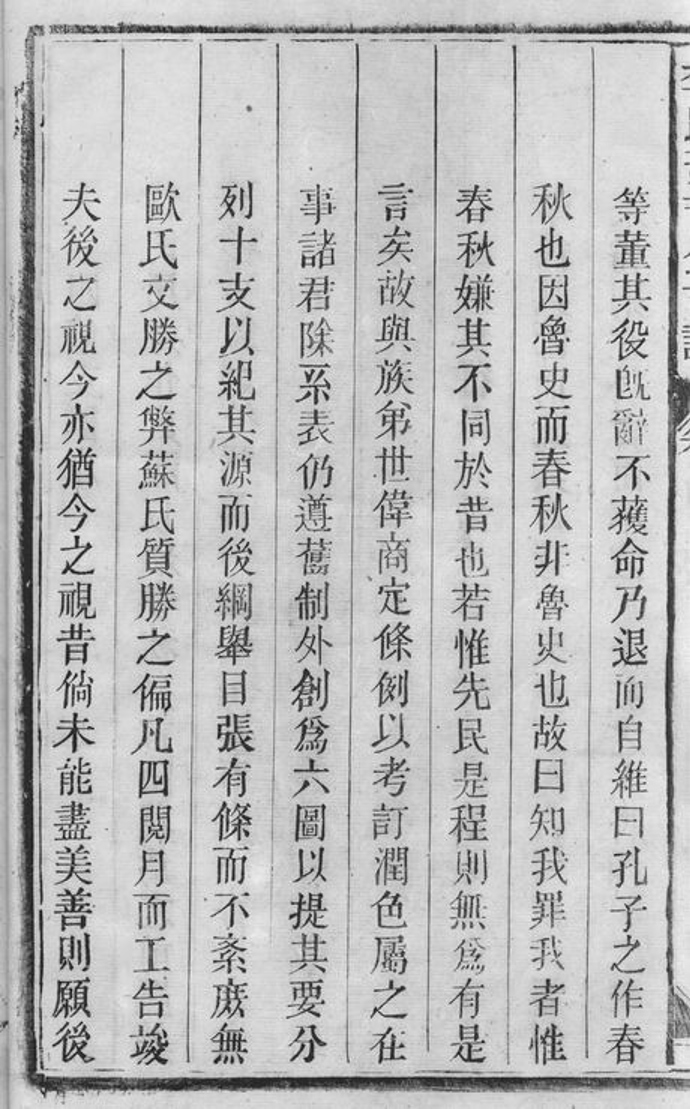 等董其役旣辭不獲命乃退而自維曰孔子之作春
秋也因魯史而春秋非魯史也故曰知我罪我者惟
春秋嫌其不同於昔也若惟先民是程則無爲有是
言矣故與族弟世偉商定條例以考訂潤色屬之在
事諸君除系表仍遵舊制外創爲六圖以提其要分
列十支以紀其源而後綱舉目張有條而不紊庶無
歐氏文勝之弊蘇氏質勝之偏凡四閱月而工告竣
夫後之視今亦猶今之視昔倘未能盡美善則願後